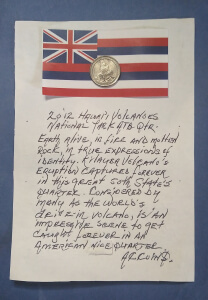 2012 HAWAI'I VOLCANOES
NATIONAL PARK ATB QTR.
EARTH ALIVE, IN FIRE AND MOLTEN
ROCK, IN TRUE EXPRESSIONS OF
IDENTITY. KILAUEA VOLCANO'S
ERUPTION CAPTURED FOREVER
IN THIS GREAT 50TH STATE'S
QUARTER. CONSIDERED BY
MANY AS THE WORLD'S
DRIVE-IN VOLCANO, IS AN
IMPRESSIVE SCENE TO GET
CAUGHT FOREVER IN AN
AMERICAN NICE QUARTER.